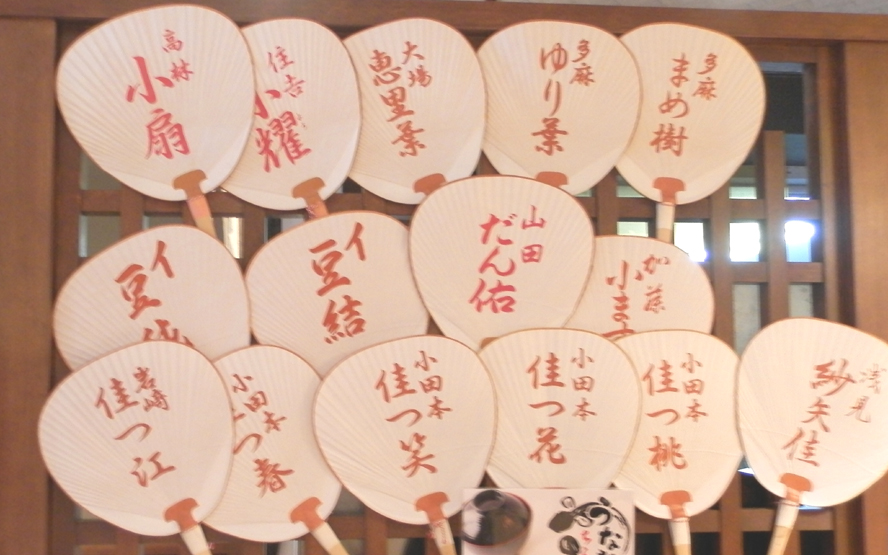 高林
小扇
住吉
小耀
大場
恵里葉
多麻
ゆり葉
多麻
まめ樹
イ
豆
イ
豆結
山田
だん佑
加藤
小ます
岩崎
佳つ江
小田本
つ春
小田本
佳つ笑
小田本
佳つ花
小田本
佳つ桃
浅見
紗矢佳
うな